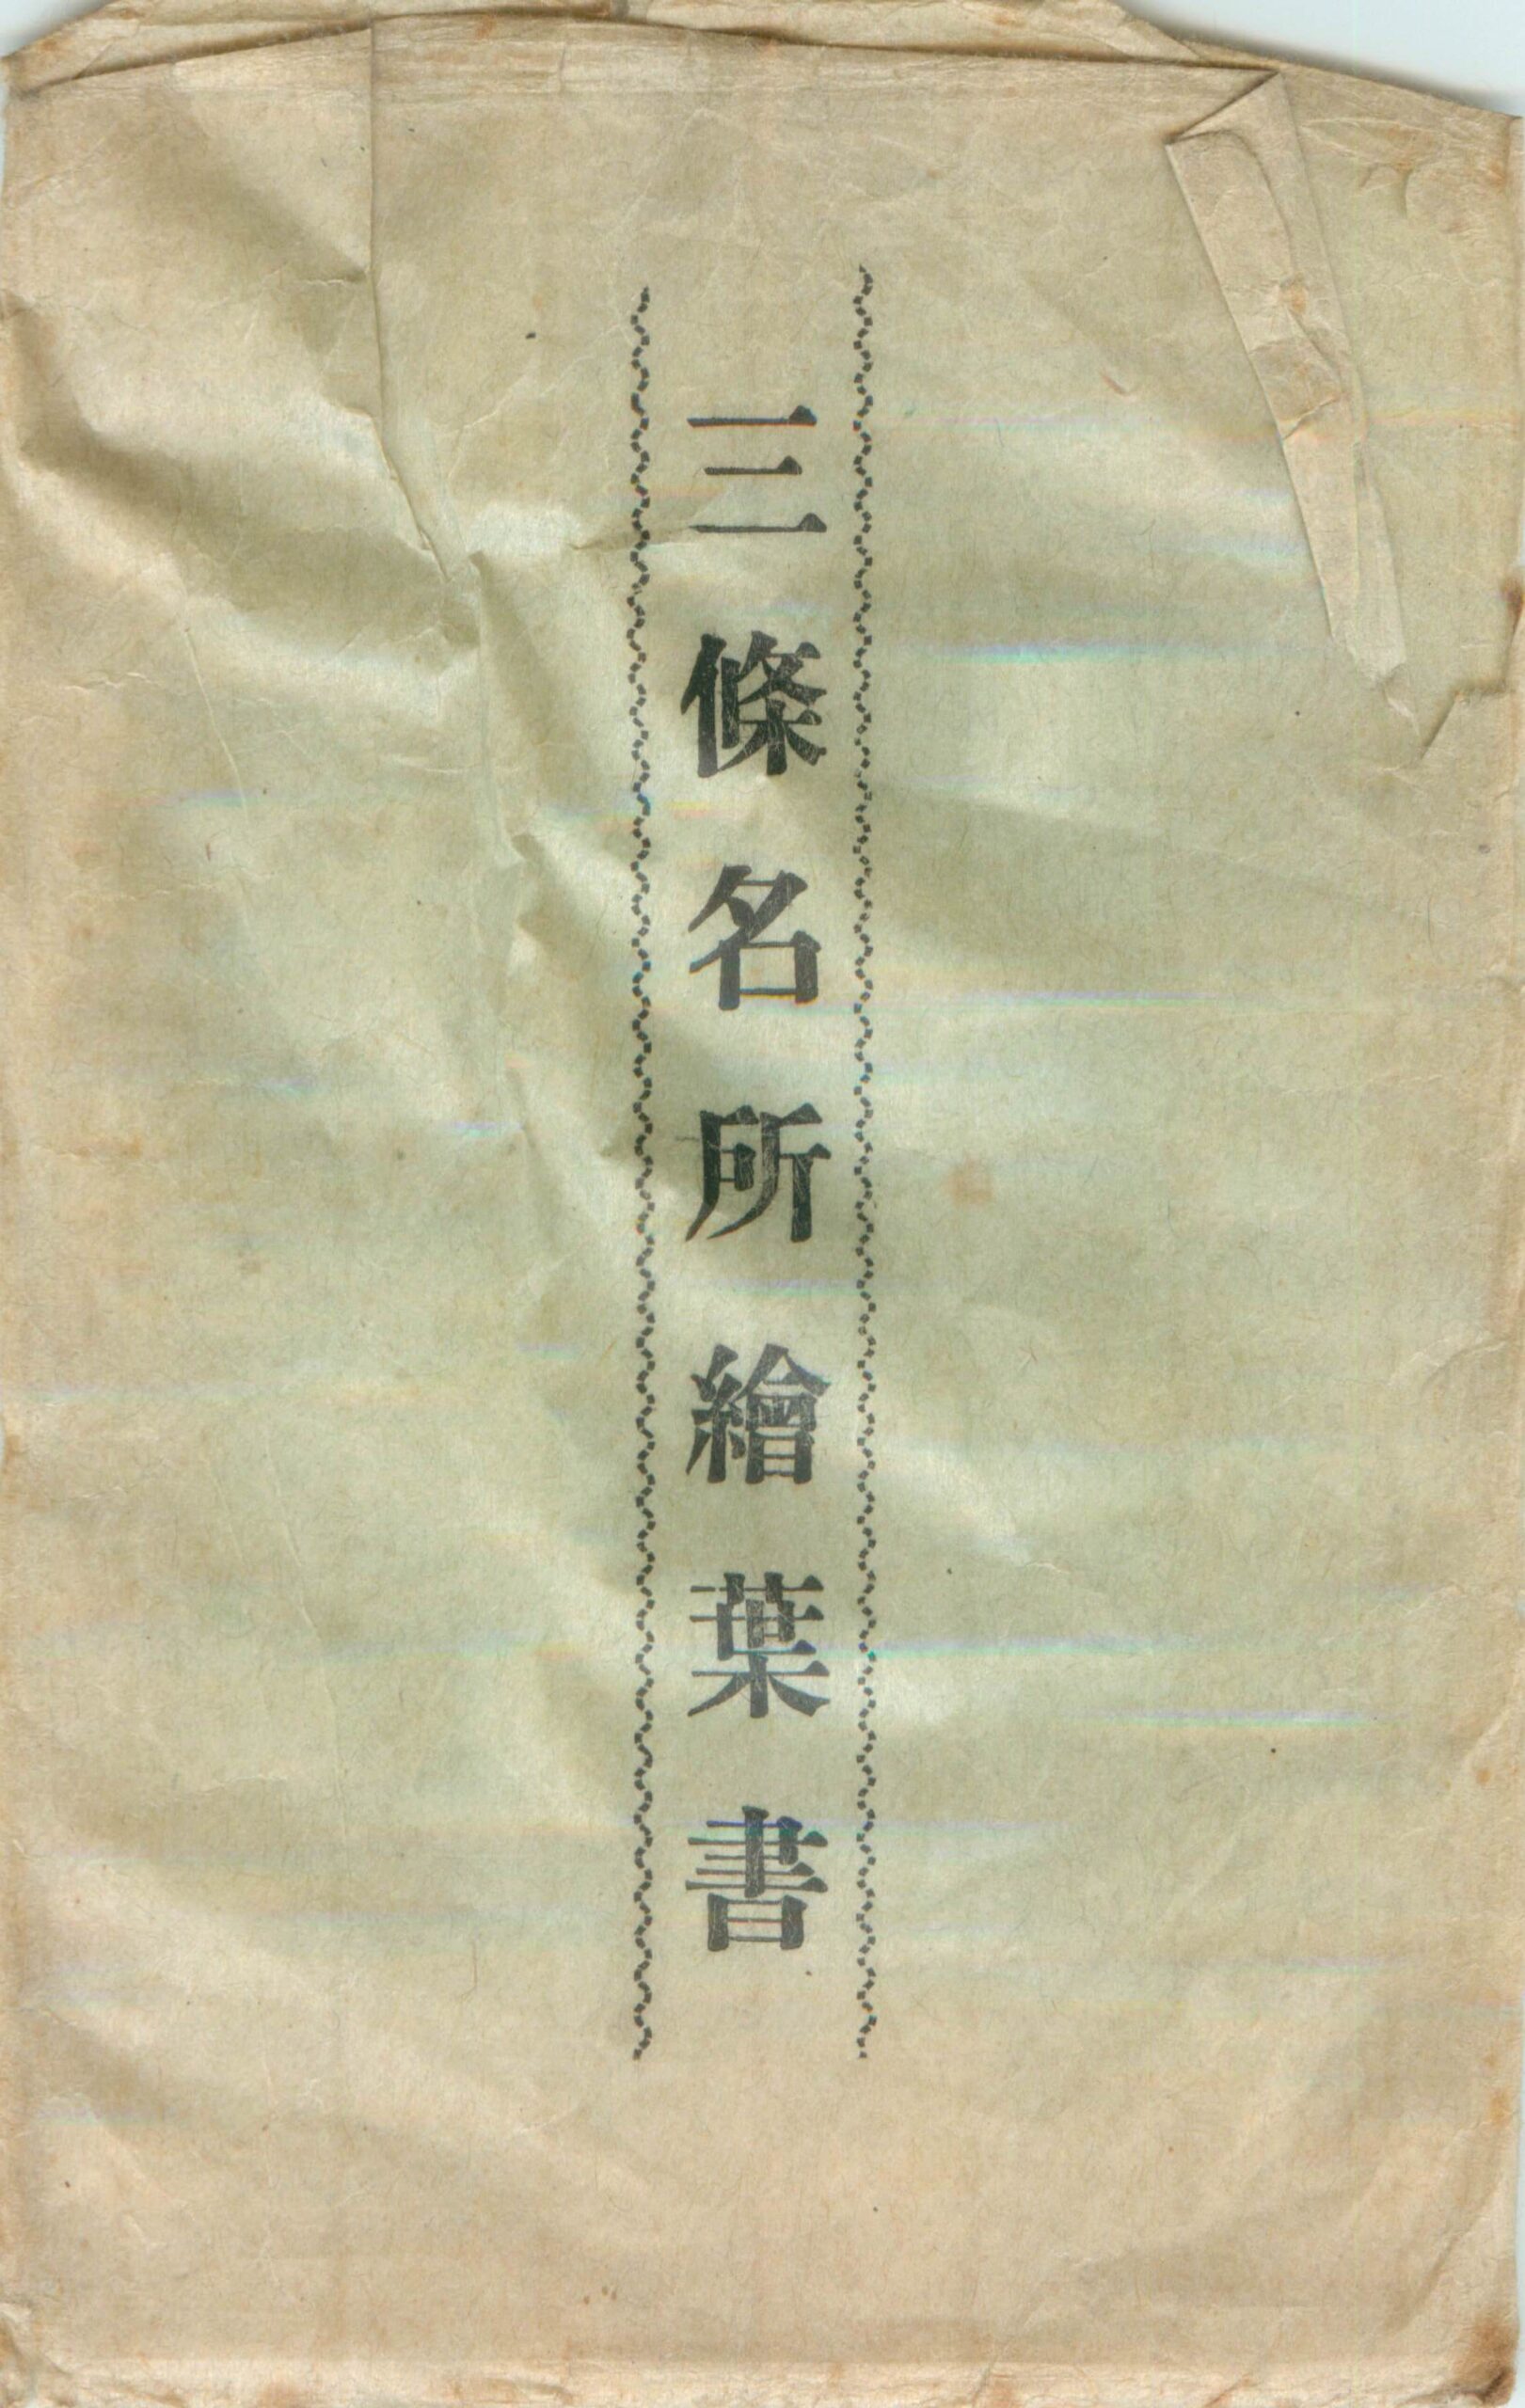 三條名所繪葉書